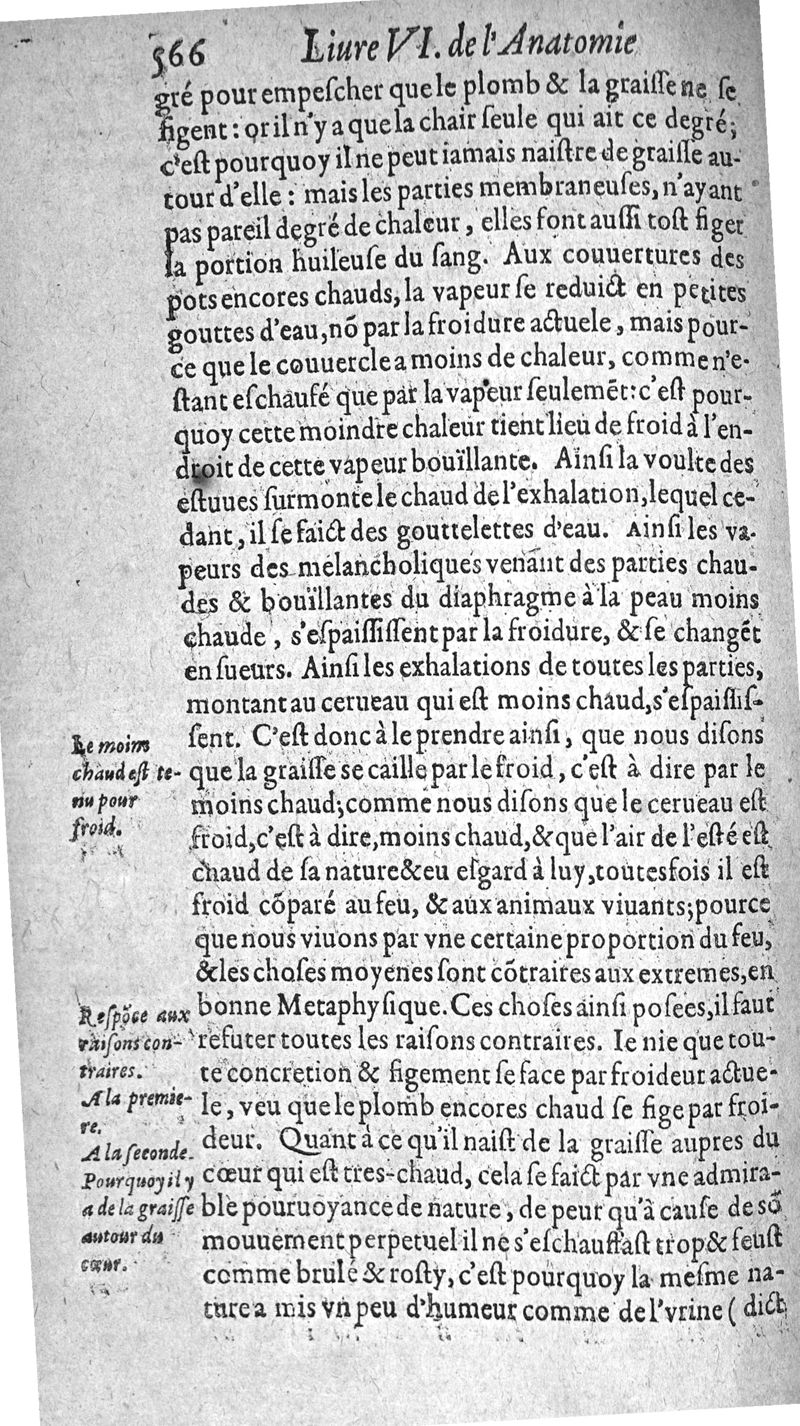 566 Liure VI. de l'Anatomie
gré pour empeſcher que le plomb & la graiſſe ne ſe
figent : or il n'y a que la chair ſeule qui ait ce degré;
c'eſt pourquoy il ne peut iamais naiſtre de graiſſe au-
tour d'elle : mais les parties membraneuſes, n'ayant
pas pareil degré de chaleur, elles font auſſi toſt figer
la portion huileuſe du ſang. Aux couuertures des
pots encores chauds, la vapeur ſe reduict en petites
gouttes d'eau, nõ par la froidure actuele, mais pour-
ce que le couuercle a moins de chaleur, comme n'e-
ſtant eſchaufé que par la vapeur ſeulemẽt: c'eſt pour-
quoy cette moindre chaleur tient lieu de froid à l'en-
droit de cette vapeur bouïllante. Ainſi la voulte des
eſtuues ſurmonte le chaud de l'exhalation, lequel ce-
dant, il ſe faict des gouttelettes d'eau. Ainſi les va-
peurs des mélancholiques venãnt des parties chau-
des & bouïllantes du diaphragme à la peau moins
chaude, s'eſpaiſſiſſent par la froidure, & ſe changẽt
en ſueurs. Ainſi les exhalations de toutes les parties,
montant au cerueau qui eſt moins chaud, s'eſpaiſſiſ-
ſent. C'eſt donc à le prendre ainſi, que nous diſons
que la graiſſe se caille par le froid, c'eſt à dire par le
moins chaud; comme nous diſons que le cerueau eſt
froid, c'eſt à dire, moins chaud, & que l'air de l'eſté eſt
chaud de ſa nature & eu eſgard à luy, toutesfois il eſt
froid cõparé au feu, & aux animaux viuants; pource
que nous viuons par vne certaine proportion du feu,
& les choſes moyenes ſont cõtraires aux extremes, en
bonne Metaphyſique. Ces choſes ainſi poſees, il faut
refuter toutes les raiſons contraires. Ie nie que tou-
te concretion & figement ſe face par froideur actue-
le, veu que le plomb encores chaud ſe fige par froi-
deur. Quant à ce qu'il naiſt de la graiſſe aupres du
cœur qui eſt tres-chaud, cela ſe faict par vne admira-
ble pouruoyance de nature, de peur qu'à cauſe de sõ
mouuement perpetuel il ne s'eſchauffaſt trop & feuſt
comme brulé & roſty, c'eſt pourquoy la meſme na-
ture a mis vn peu d'humeur comme de l'vrine ( dict
Le moins
chaud eſt te-
nu pour
froid.
Reſpõce aux
raiſons con-
traires.
A la premie-
re.
A la ſeconde.
Pourquoy il y
a de la graiſſe
autour du
cœur.